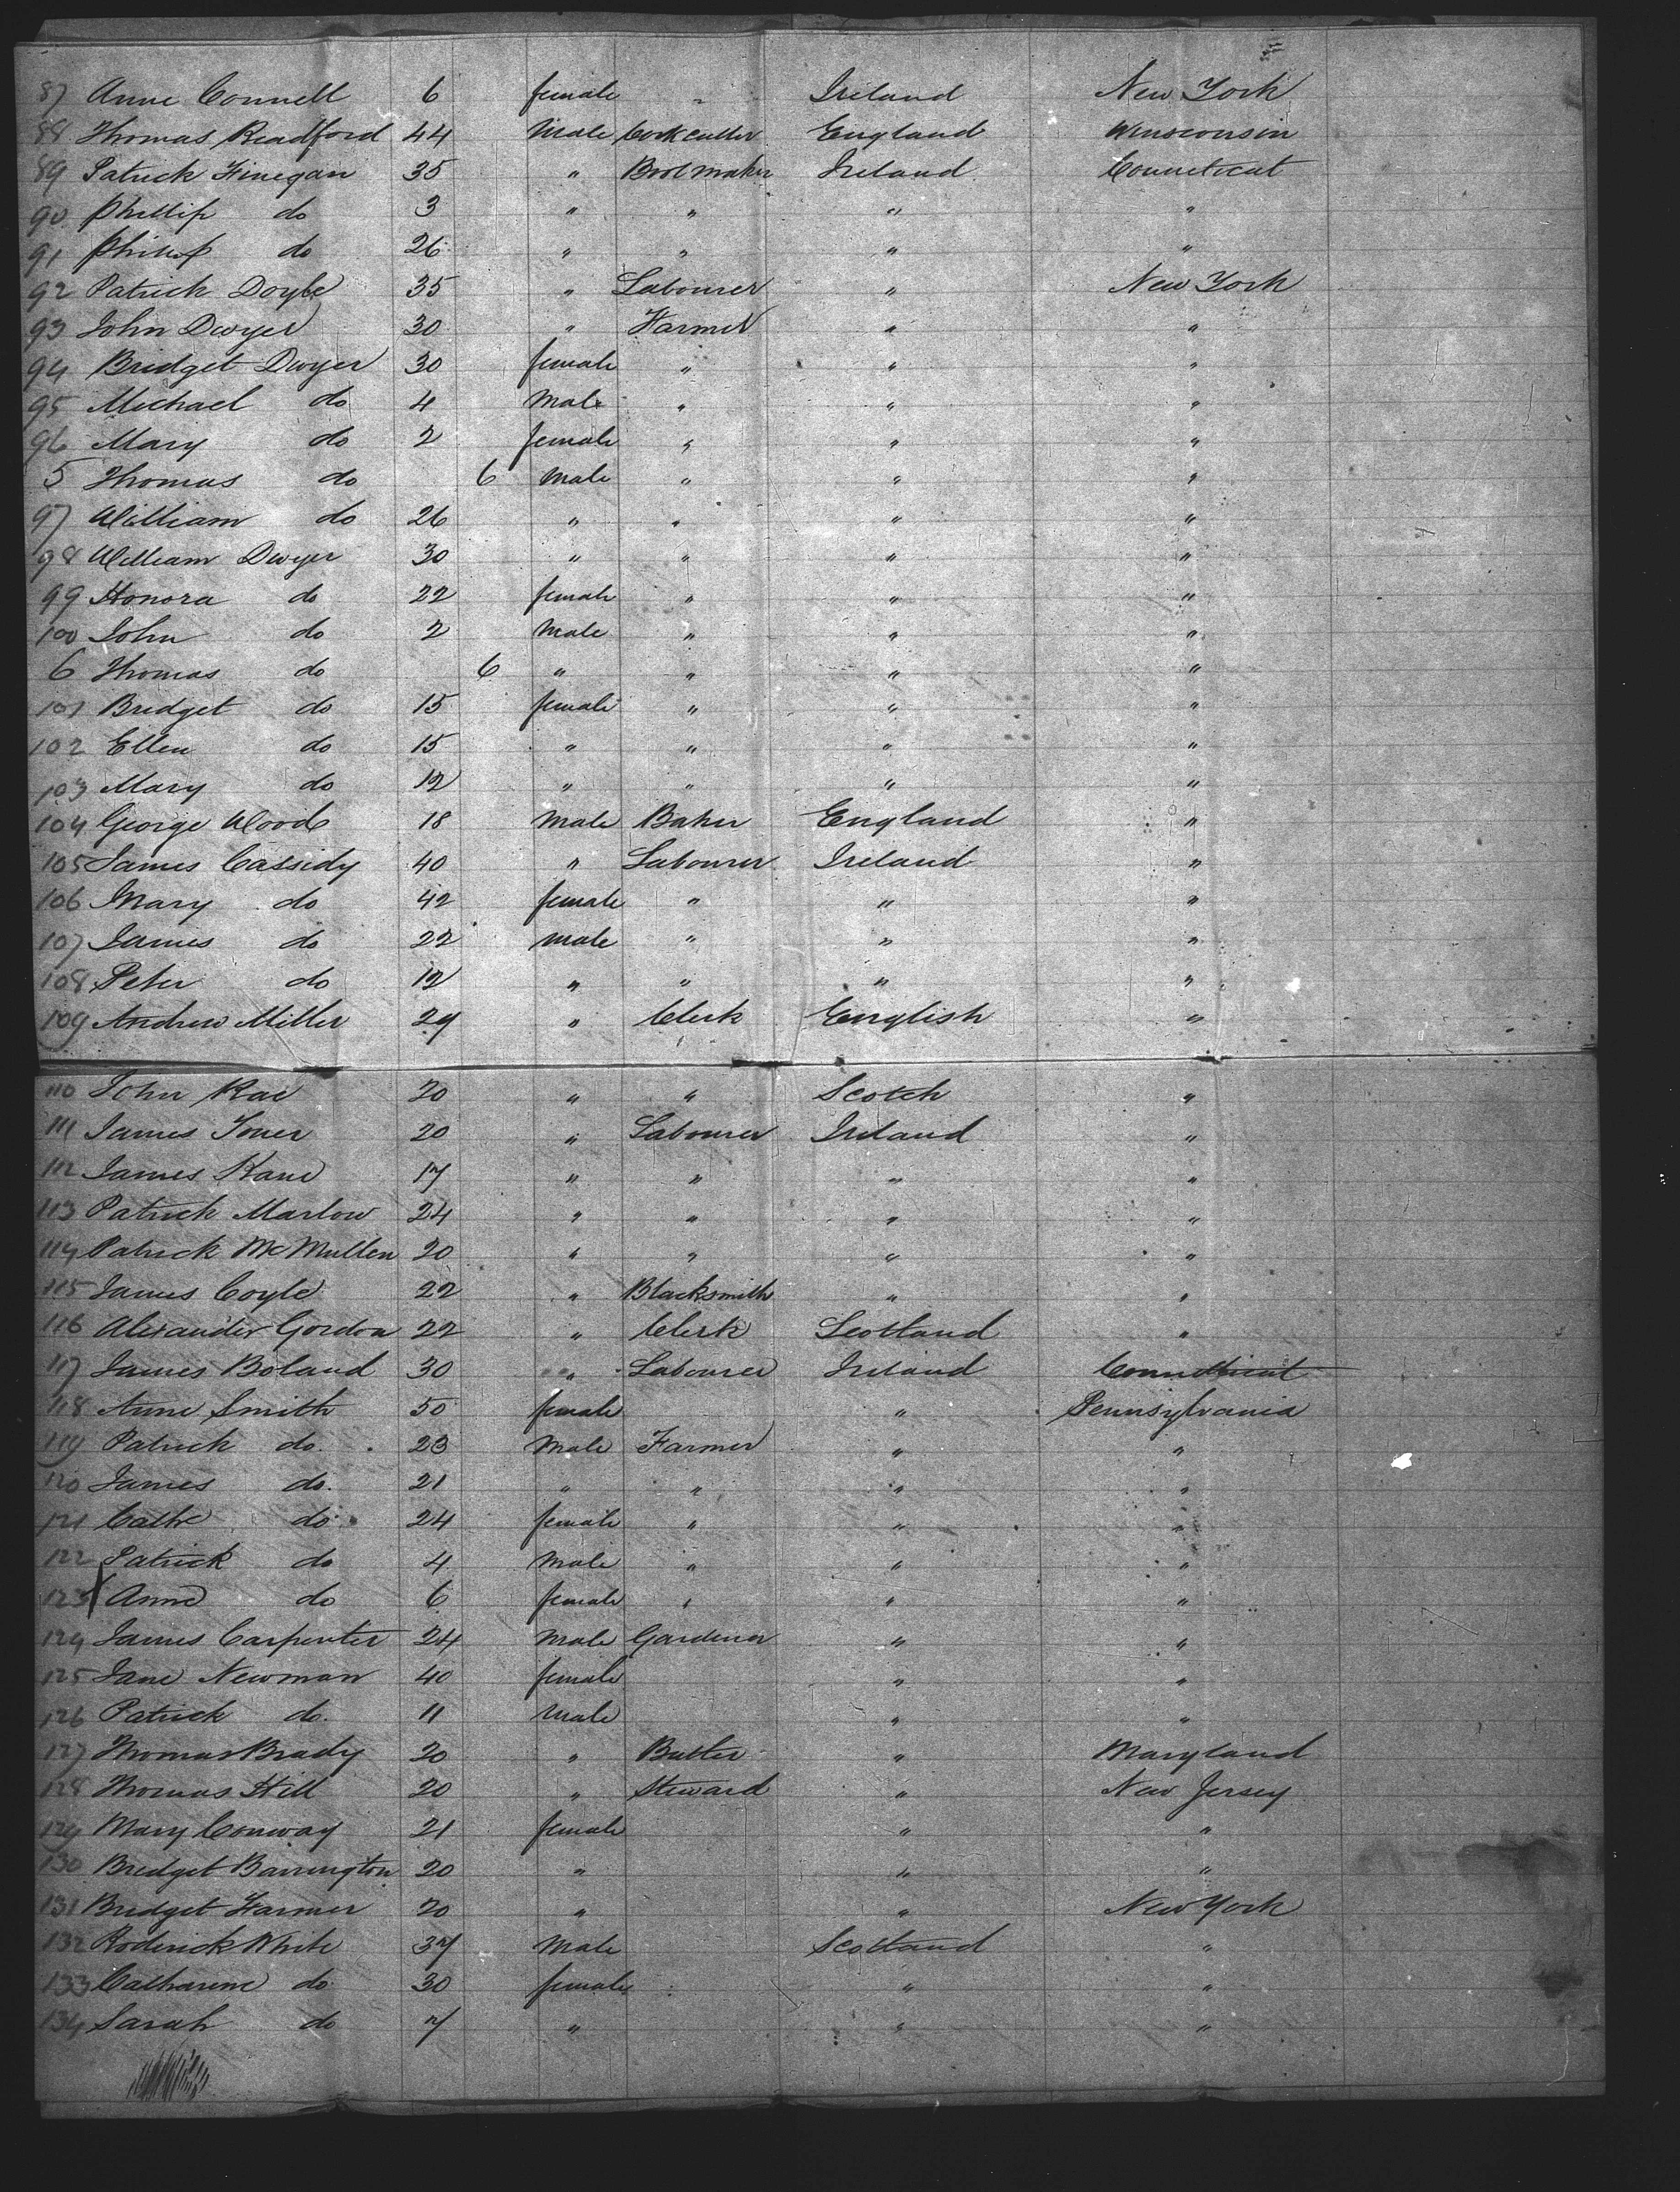 87 Anne Connell 6 female " Ireland New York
88 Thomas Readford 44 Male Cork cutter England Winsconsin
89 Patrick Finegan 35 " Bootmaker Ireland Connetecut
90 Phillip do 3 " " " "
91 Philip do 26 " " " "
92 Patrick Doyle 35 " Labourer " New York
93 John Dwyer 30 " Farmer " "
94 Bridget Dwyer 30 female " " "
95 Michael do 4 Male " " "
96 Mary do 2 female " " "
5 Thomas do 6 Male " " "
97 William do 26 " " " "
98 William Dwyer 30 " " " "
99 Honora do 22 female " " "
100 John do 2 Male " " "
6 Thomas do 6 " " " "
101 Bridget do 15 female " " "
102 Ellen do 15 " " " "
103 Mary do 12 " " " "
104 George Wood 18 Male Baker England "
105 James Cassidy 40 " Labourer Ireland "
106 Mary do 42 female " " "
107 James do 22 male " " "
108 Peter do 12 " " " "
109 Andrew Miller 29 " Clerk English "
110 John Rae 20 " " Scotch "
111 James 20 " Labourer Ireland "
112 James Kane 17 " " " "
113 Patrick Marlow 24 " " " "
114 Patrick McMullen 20 " " " "
115 James Coyle 22 " Blacksmith " "
116 Alexander Gordon 22 " Clerk Scotland "
117 James Boland 30 " Labourer Ireland Conneticut
118 Anne Smith 50 female " Pennsylvania
119 Patrick do. 23 Male Farmer " "
120 James do. 21 " " " "
121 Cathe do 24 female " " "
122 Patrick do 4 Male " " "
123 Anne do 6 female " " "
124 James Carpenter 24 Male Gardener " "
125 Jane Newman 40 female " "
126 Patrick do. 11 Male " "
127 Thomas Brady 20 " Butler " Maryland
128 Thomas Hill 20 " Steward " New Jersey
129 Mary Conway 21 female " "
130 Bridget Barrington 20 " " "
131 Bridget Farmer 20 " " New York
132 Roderick White 37 Male Scotland "
133 Catharine do 30 female " "
134 Sarah do 7 " " "